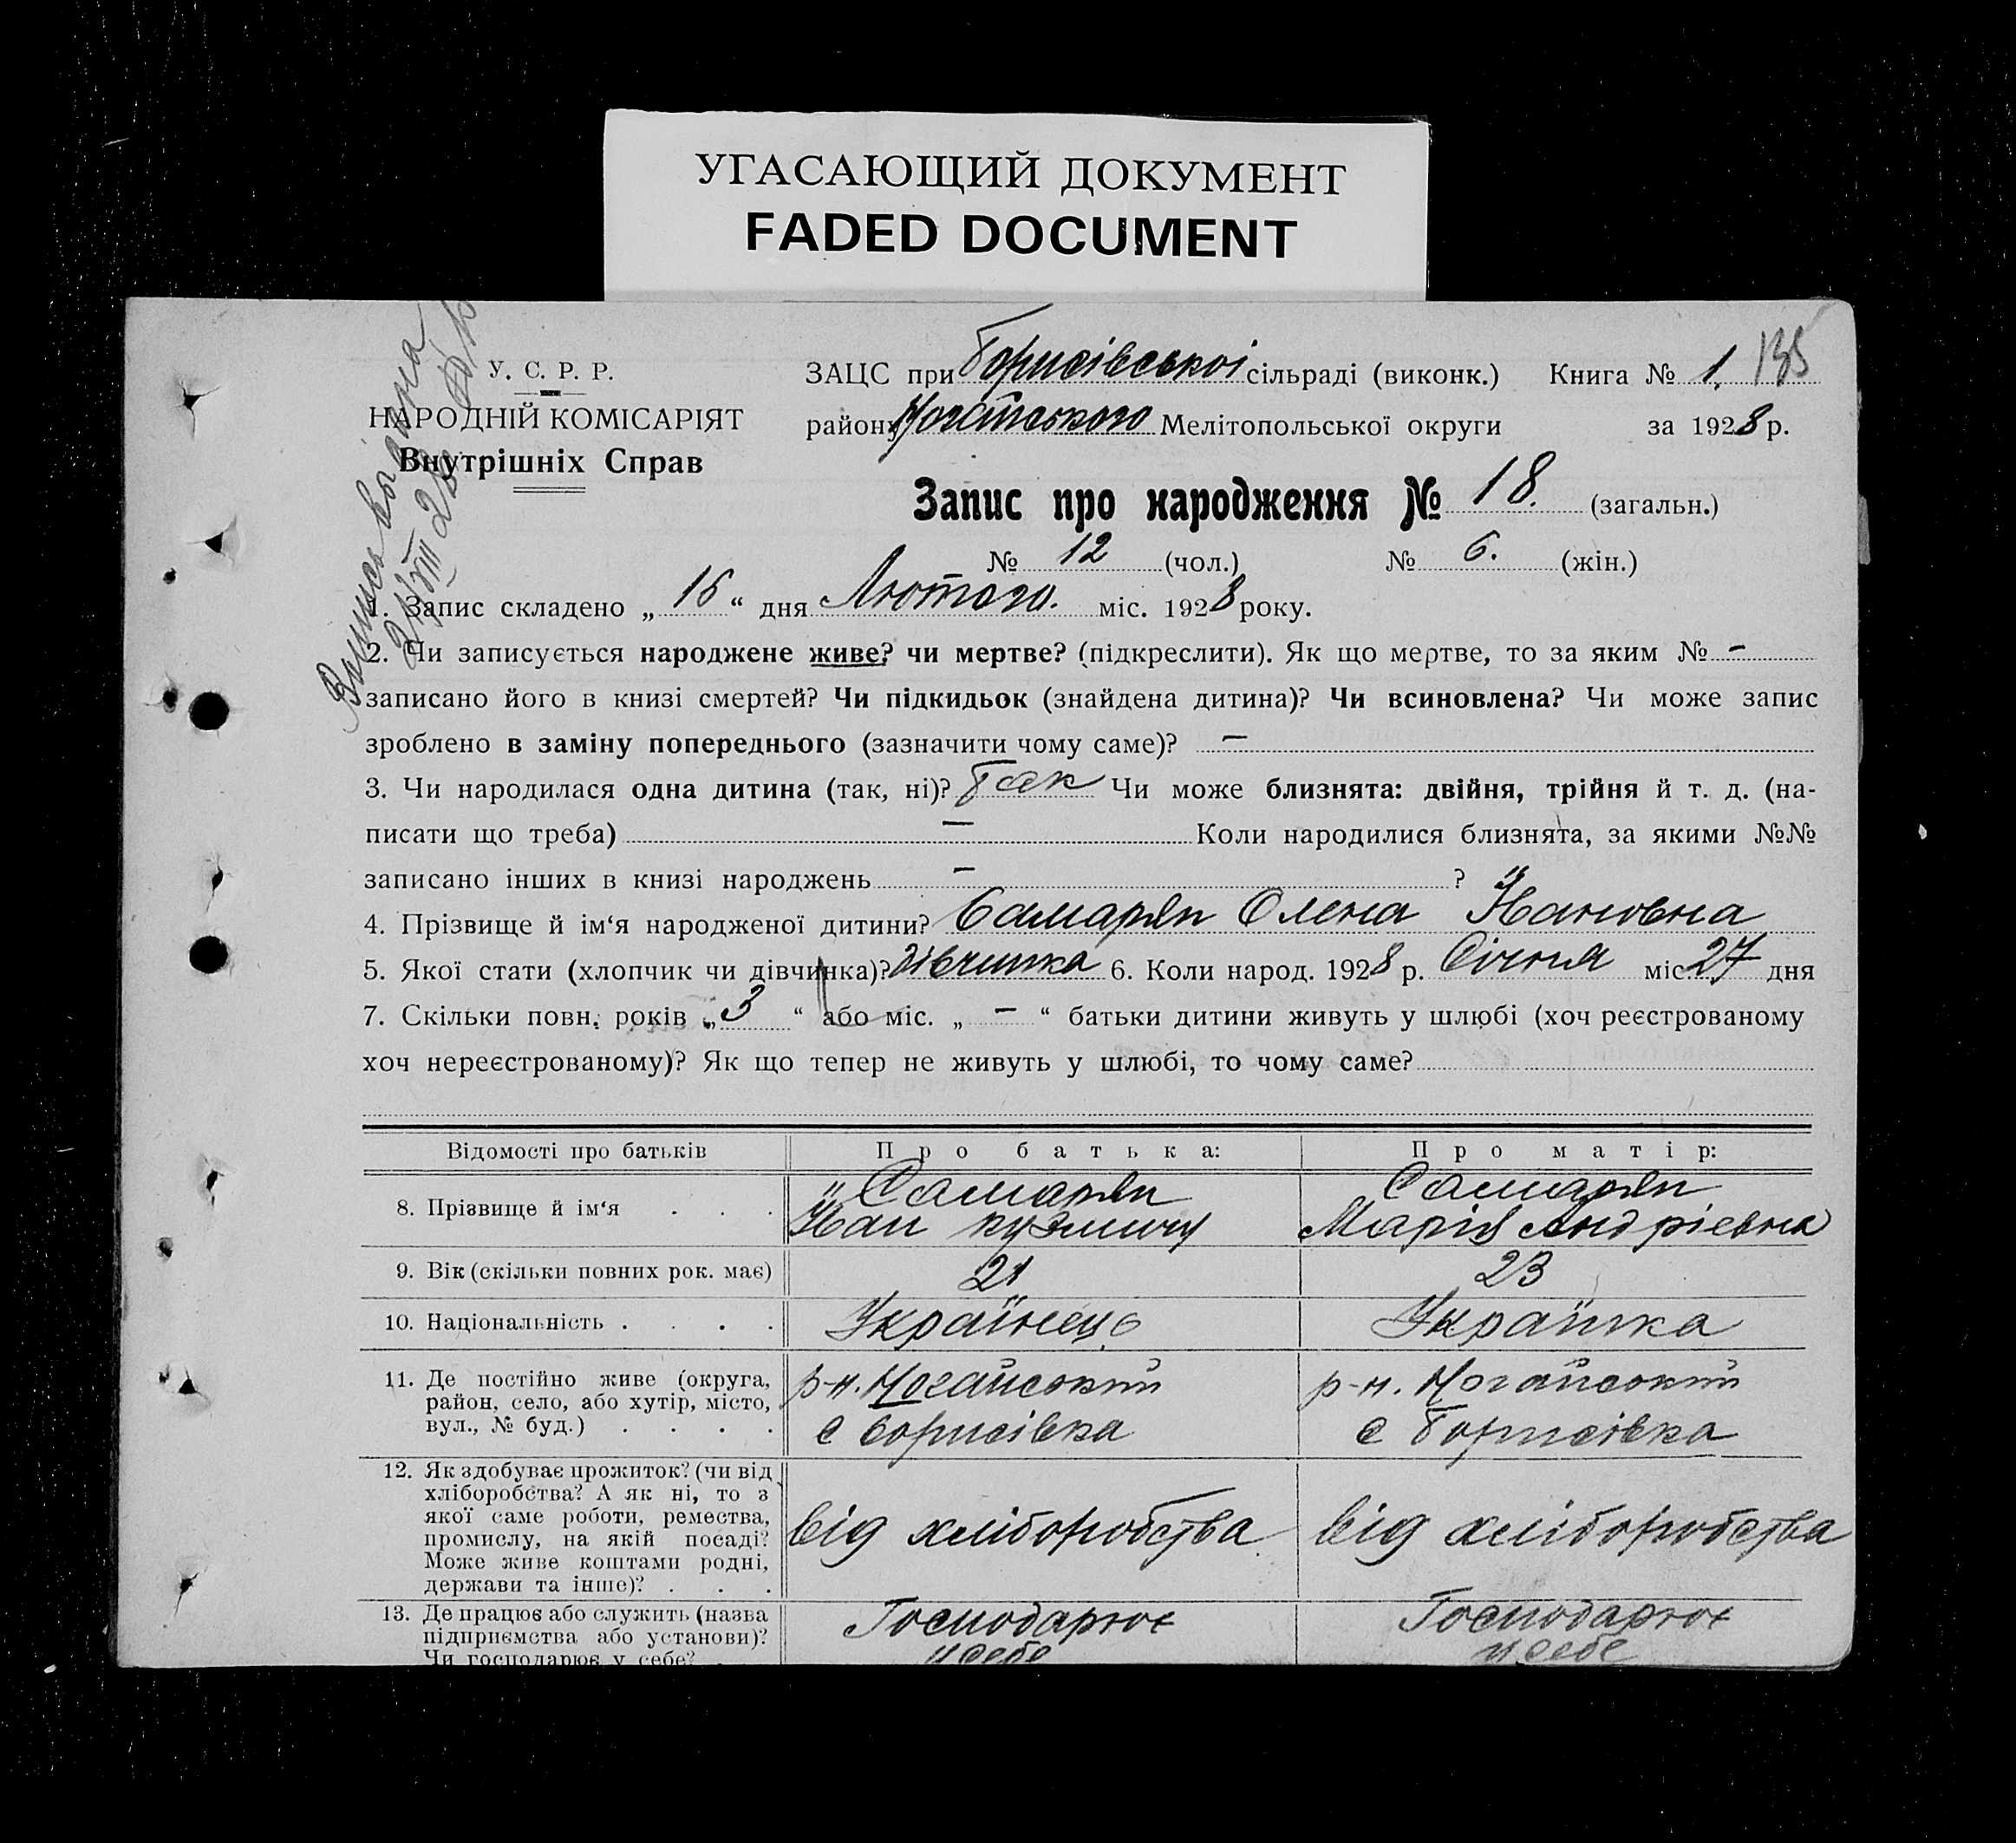 УГАСАЮЩИЙ ДОКУМЕНТ
FADED DOCUMENT
У. С. Р. Р.
НАРОДНІЙ КОМІСАРІЯТ
Внутрішніх Справ
ЗАЦС при Борисівської сільраді (виконк.) Книга № 1. 135
району Ногайського Мелітопольської округи за 1928 р.
Запис про народження № 18. (загальн.)
№ 12 (чол.) № 6. (жін.)
1. Запис складено „ 16 “ дня Лютого. міс. 1928 року.
2. Чи записується народжене живе? чи мертве? (підкреслити). Як що мертве, то за яким № –
записано його в книзі смертей? Чи підкидьок (знайдена дитина)? Чи всиновлена? Чи може запис
зроблено в заміну попереднього (зазначити чому саме)? –
3. Чи народилася одна дитина (так, ні)? Так Чи може близнята: двійня, трійня й т. д. (на-
писати що треба) – Коли народилися близнята, за якими №№
записано інших в книзі народжень – ?
4. Прізвище й ім‘я народженої дитини? Самарян Олена Йвановна
5. Якої стати (хлопчик чи дівчинка)? дівчинка 6. Коли народ. 1928 р. Січня міс. 27 дня
7. Скільки повн. років „ 3 “ або міс. „ – “ батьки дитини живуть у шлюбі (хоч реєстрованому
хоч нереєстрованому)? Як що тепер не живуть у шлюбі, то чому саме?
Відомості про батьків Про батька: Про матір:
8. Прізвище й ім‘я . . . Самарян Самарян
Йван Кузмичу Марія Андріевна
9. Вік (скільки повних рок. має) 21 23
10. Національність . . . . Українець Українка
11. Де постійно живе (округа, р-н. Ногайський р-н. Ногайський
район, село, або хутір, місто,
вул., № буд.) . . . . с Борисівка с Борисівка
12. Як здобуває прожиток? (чи від
хліборобства? А як ні, то з
якої саме роботи, ремества, від хліборобства від хліборобства
промислу, на якій посаді?
Може живе коштами родні,
держави та інше)? . . .
13. Де працює або служить (назва Господарює Господарює
підприємства або установи)?
Чи господарює у себе? . у себе у себе